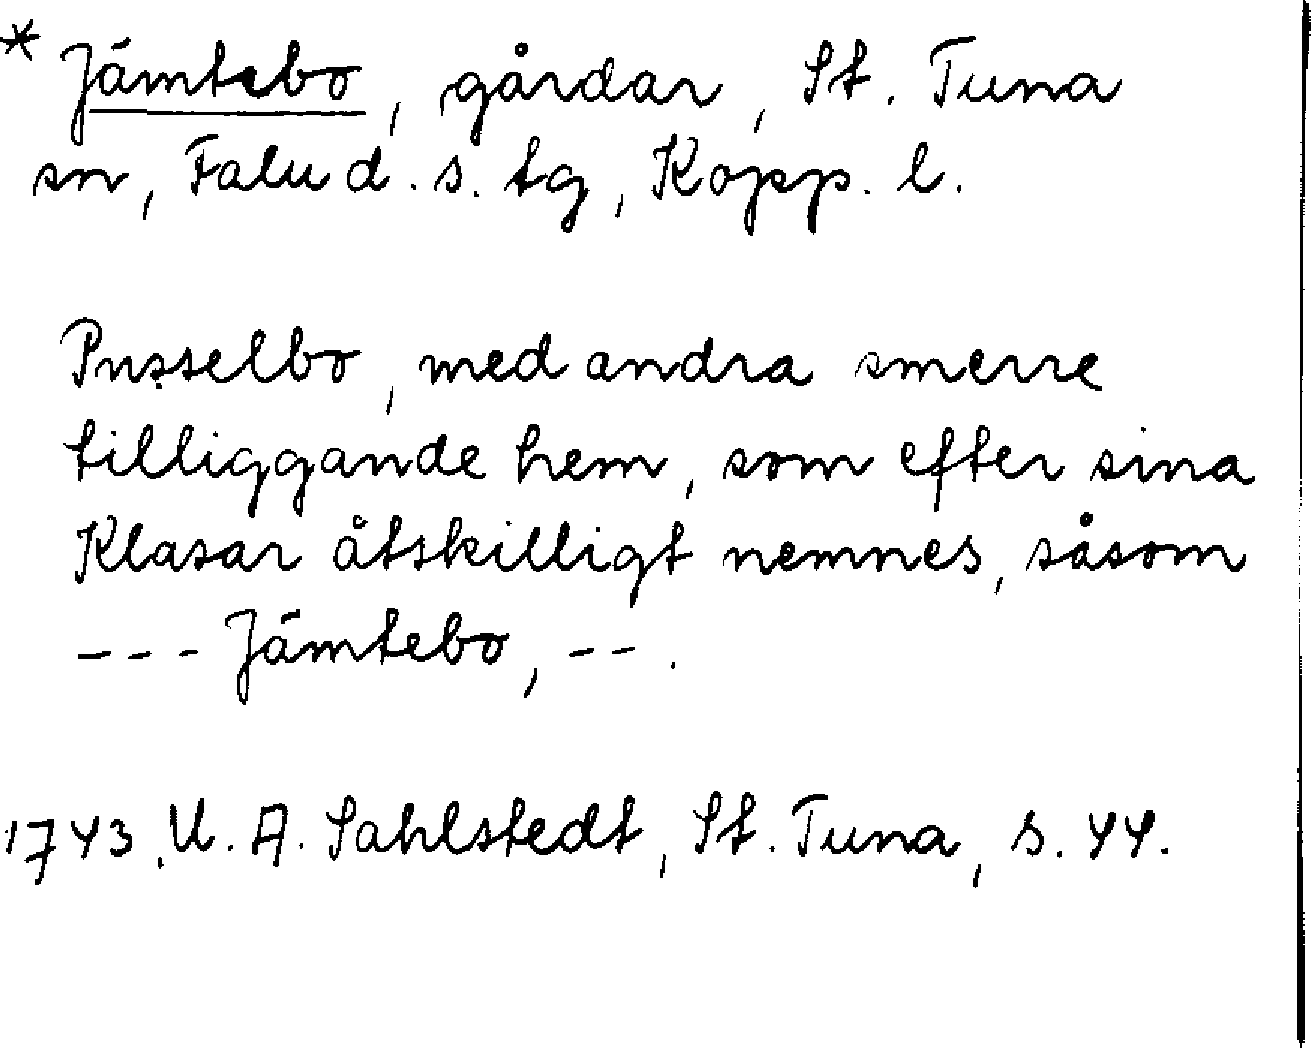 * Jämtebo, gårdar, St. Tuna
sn, Falu d. s. tg, Kopp. l.
Pusselbo, med andra smerre
tilliggande hem, som efter sina
Klasar åtskilligt nemnes, såsom
--- Jämtebo, --.
1743. U. A. Sahlstedt, St. Tuna, s. 44.